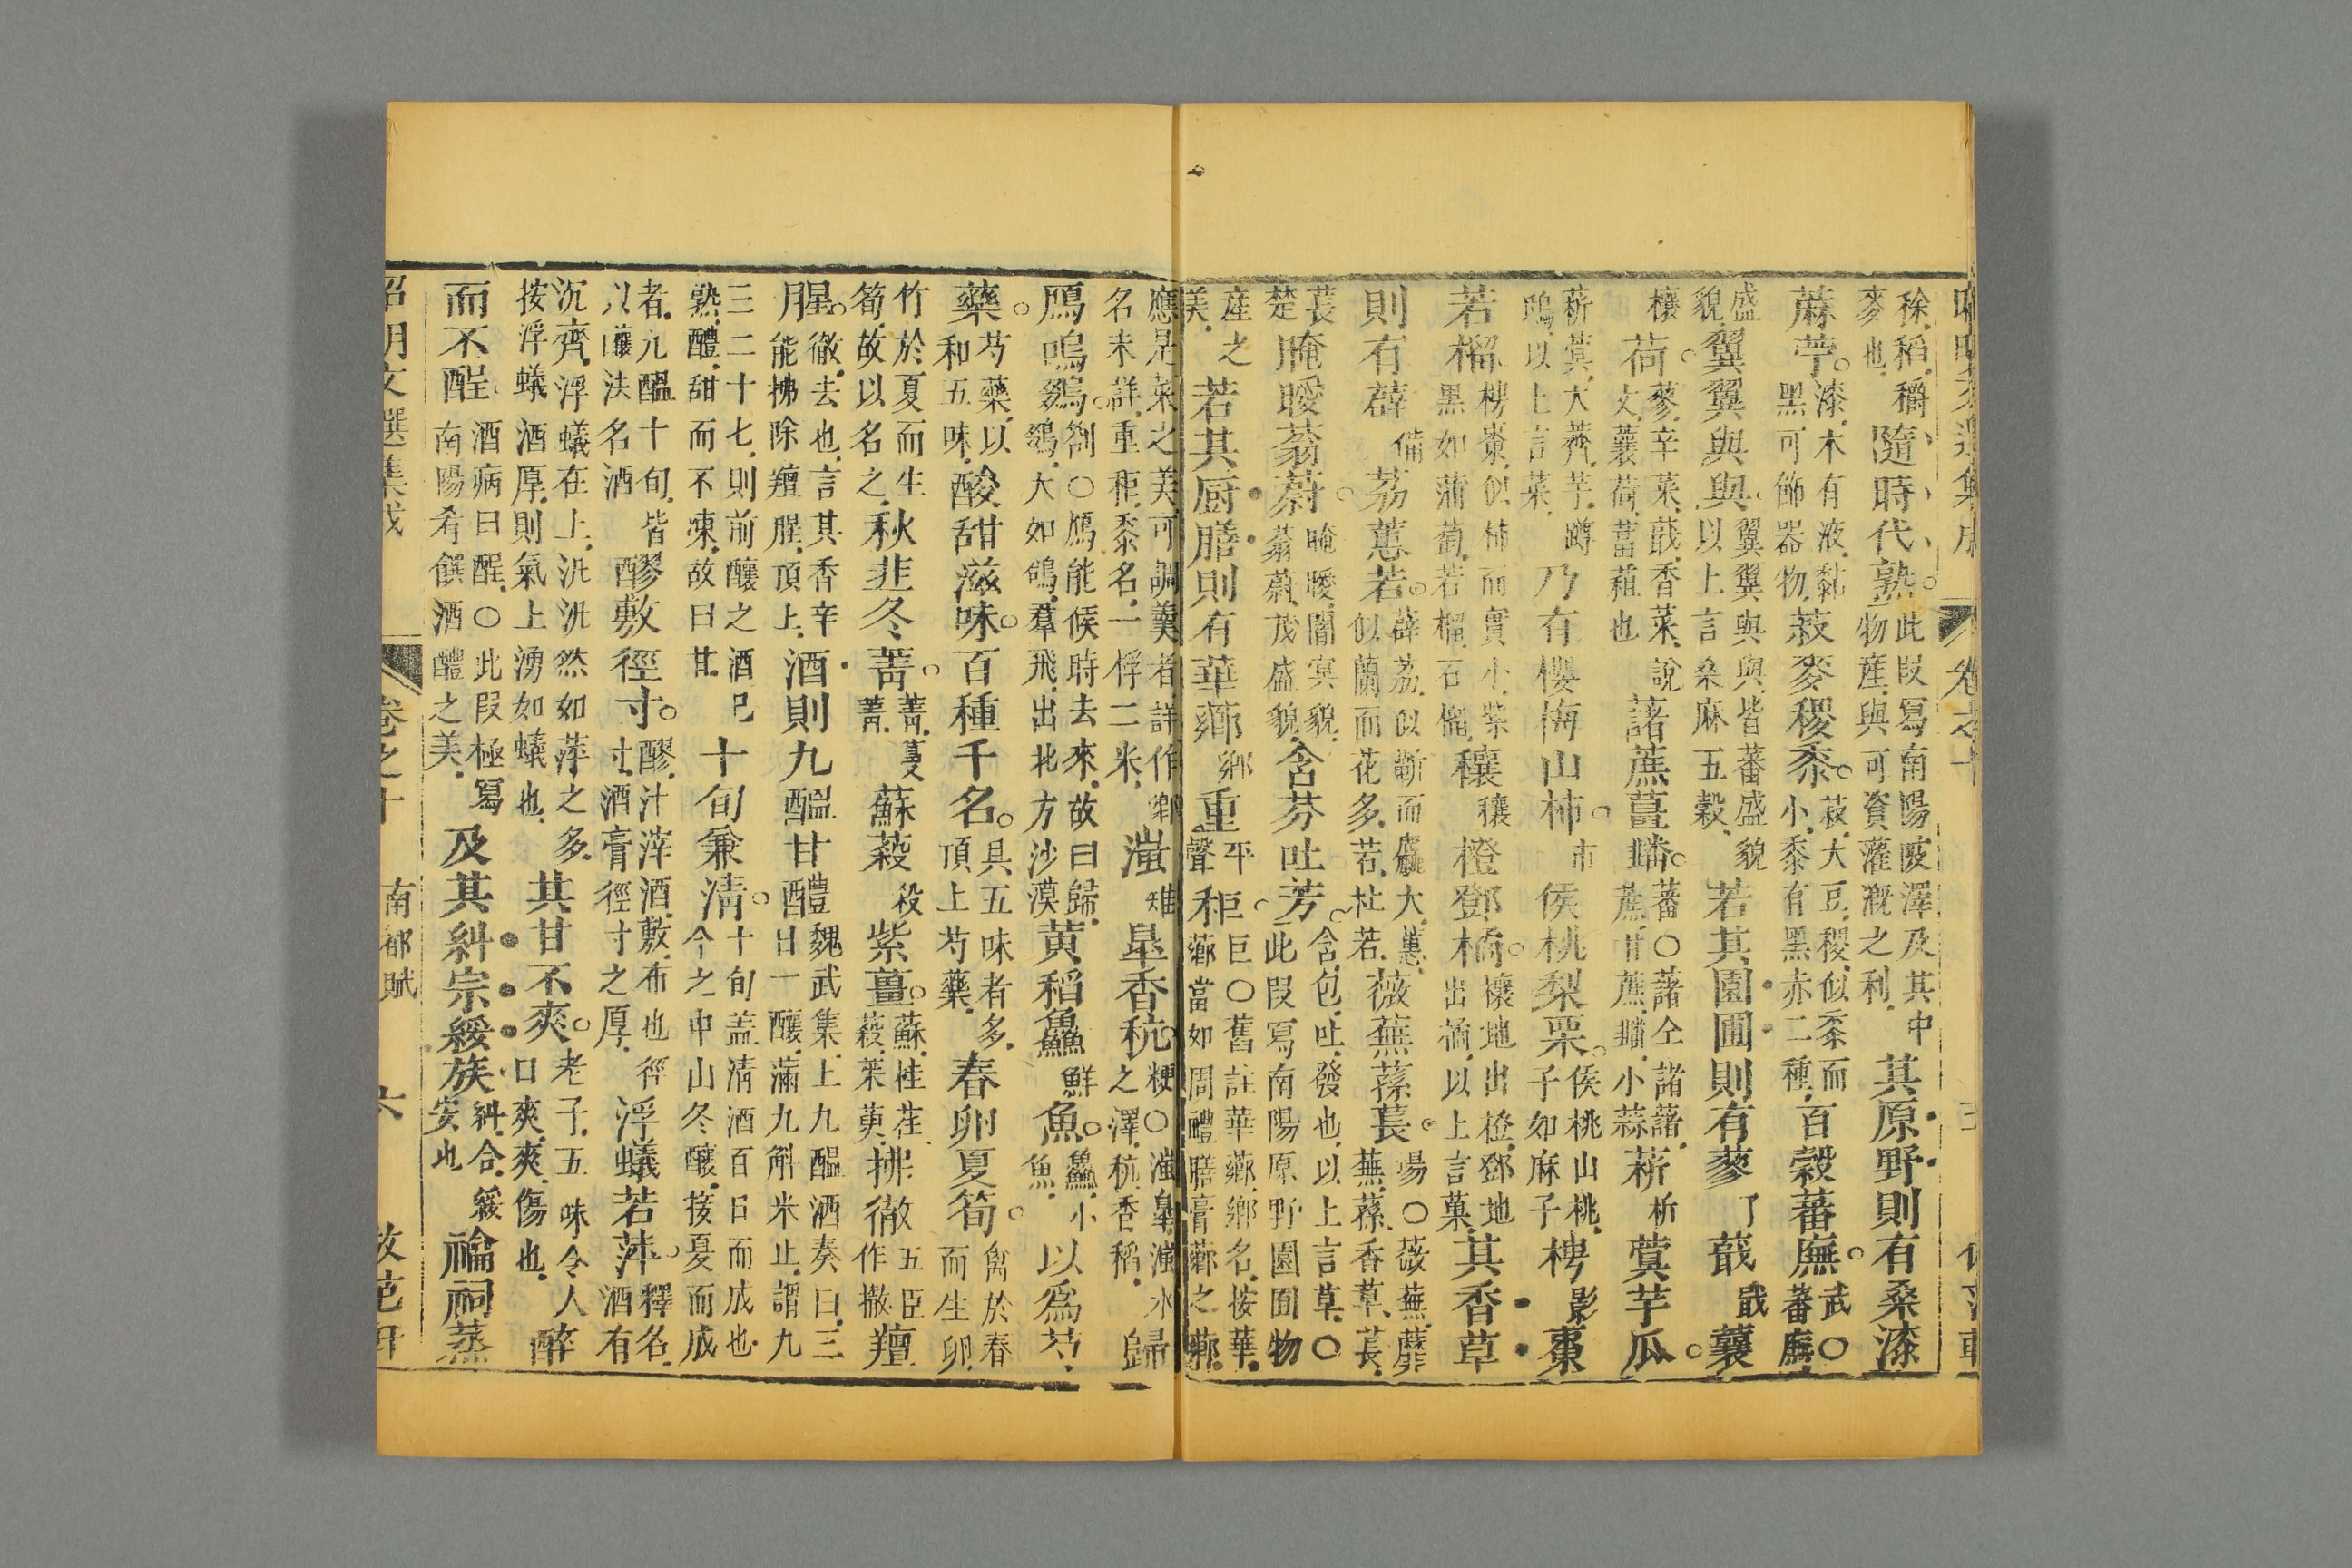 稌稻穱隨時代熟此叚寫南陽陂澤及其中其原野則有桑漆
麥也物產與可資灌溉之利
蔴苧漆木有液黏菽麥稷黍菽大豆稷似黍而百穀蕃廡武〇
黑可飾器物小黍有黑赤二種蕃廡
盛翼翼與與翼翼與與皆蕃盛貌若其園圃則有蓼了蕺戢蘘
貌以上言桑麻五穀
穰荷蓼辛菜蕺香菜說諸蔗薑䪤蕃〇諸仝諸藷菥析蓂芋瓜
文蘘荷葍蒩也蔗甘蔗䪤小蒜
菥蓂大薺芋蹲乃有櫻梅山柿市侯桃梨栗侯桃山桃梬影棗
鴟以上言菜子如麻子子
若榴梬棗似柿而實小紫穰穰橙鄧橘穰地出橙鄧地其香草
黑如蒲萄若榴石榴出橘以上言菓
則有薜備荔蕙若薜荔似蘄而麤大蕙薇蕪蓀萇暢〇薇蕪蘼
似蘭而花多若杜若蕪蓀香草萇
萇腌曖蓊蔚腌曖闇冥貌含芬吐芳含包吐發也以上言草〇
楚蓊蔚茂盛貌此叚寫南陽原野園圃物
產之若其厨膳則有華薌鄉重平秬巨〇舊註華薌鄉名按華
美聲薌當如周禮膳膏薌之薌
應是菜之美可調羹者詳作鄉滍雉臯香秔粳〇滍臯滍水歸
名未詳重秬黍名一稃二米之澤秔香稻
鴈鳴鵽劄〇鴈能候時去來故曰歸黄稻鱻鮮魚鱻小以爲芍
鵽鷄大如鴿羣飛出北方沙漠魚
藥芍藥以酸甜滋味百種千名具五味者多春卵夏筍禽於春
和五味頂上芍藥而生卵
竹於夏而生秋韭冬菁菁蔓蘇蔱殺紫薑蘇桂荏拂徹五臣羶
筍故以名之菁蔱茱萸作撤
腥徹去也言其香辛酒則九醞甘醴魏武集上九醞酒奏曰三
月能拂除羶腥頂上日一釀滿九斛米止謂九
三二十七則前釀之酒已十旬兼淸十旬盖淸酒百日而成也
熟醴甜而不涷故曰甘今之中山冬釀接夏而成
者九醞十旬皆醪敷徑寸醪汁滓酒敷布也徑浮蟻若萍釋名
以釀法名酒寸酒膏徑寸之厚酒有
沉齊浮蟻在上汎汎然如萍之多其甘不爽老子五味令人醉
按浮蟻酒厚則氣上湧如蟻也口爽爽傷也
而不酲酒病曰酲〇此叚極寫及其糾宗綏族糾合綏禴祠蒸
南陽肴饌酒醴之美安也
昭明文選集成 卷之十 南都賦 六 敦范軒